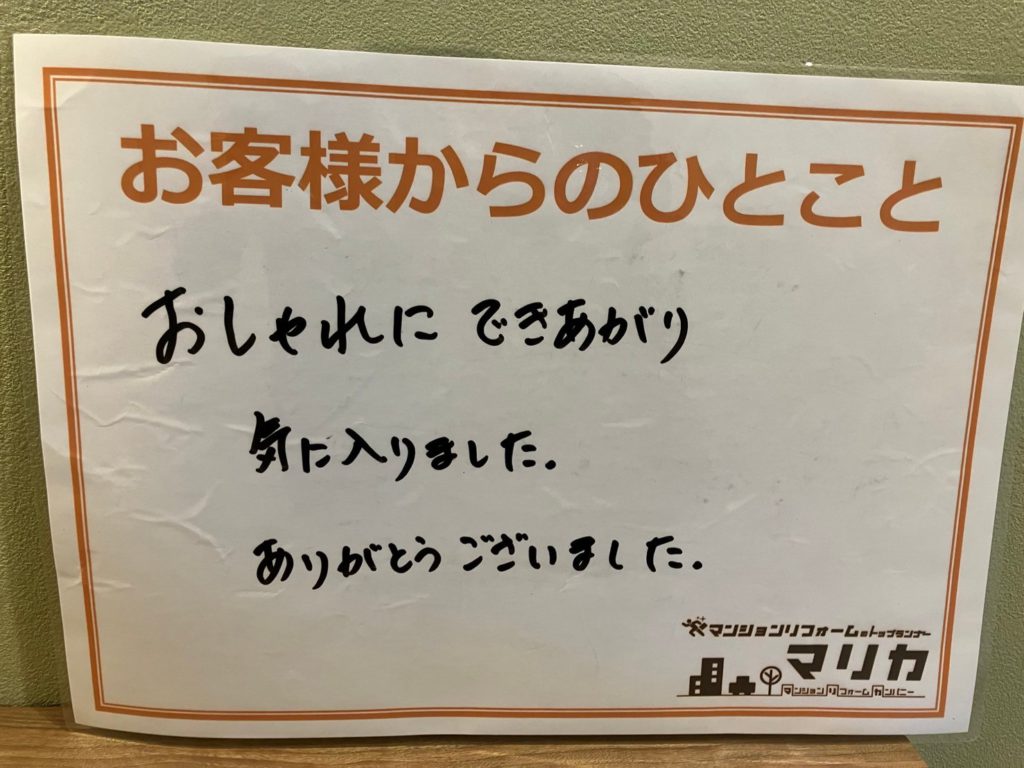 お客様からのひとこと
おしゃれに できあがり
気に入りました.
ありがとうございました.
マンションリフォームのトップランナー
マリカ
マンションリフォームカンパニー